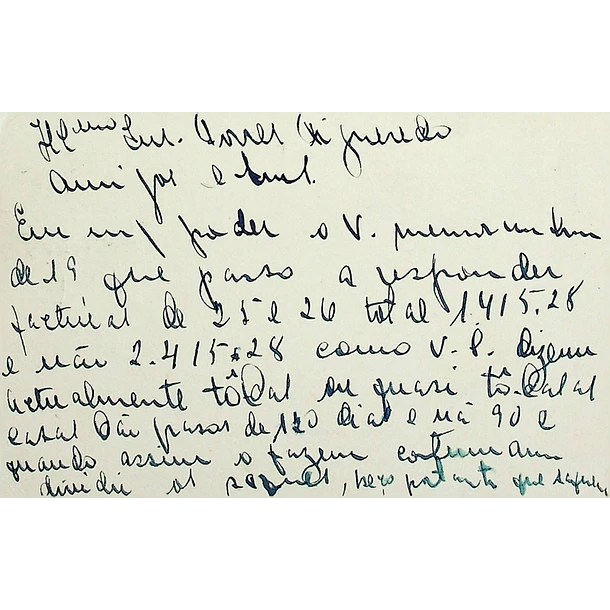 Illmo Snr. Torres Figueredo
Amigos e Snrs.
Em m/ poder o V. memorandum
de 19 que passo a responder
facturas de 25 e 26 total 1.415.28
e não 2.415.28 como V. S. dizem
actualmente tôdas ou quasi tôdas as
casas dão prasos de 120 dias e não 90 e
quando assim o fazem costumam
dividir os saques, peço portanto que